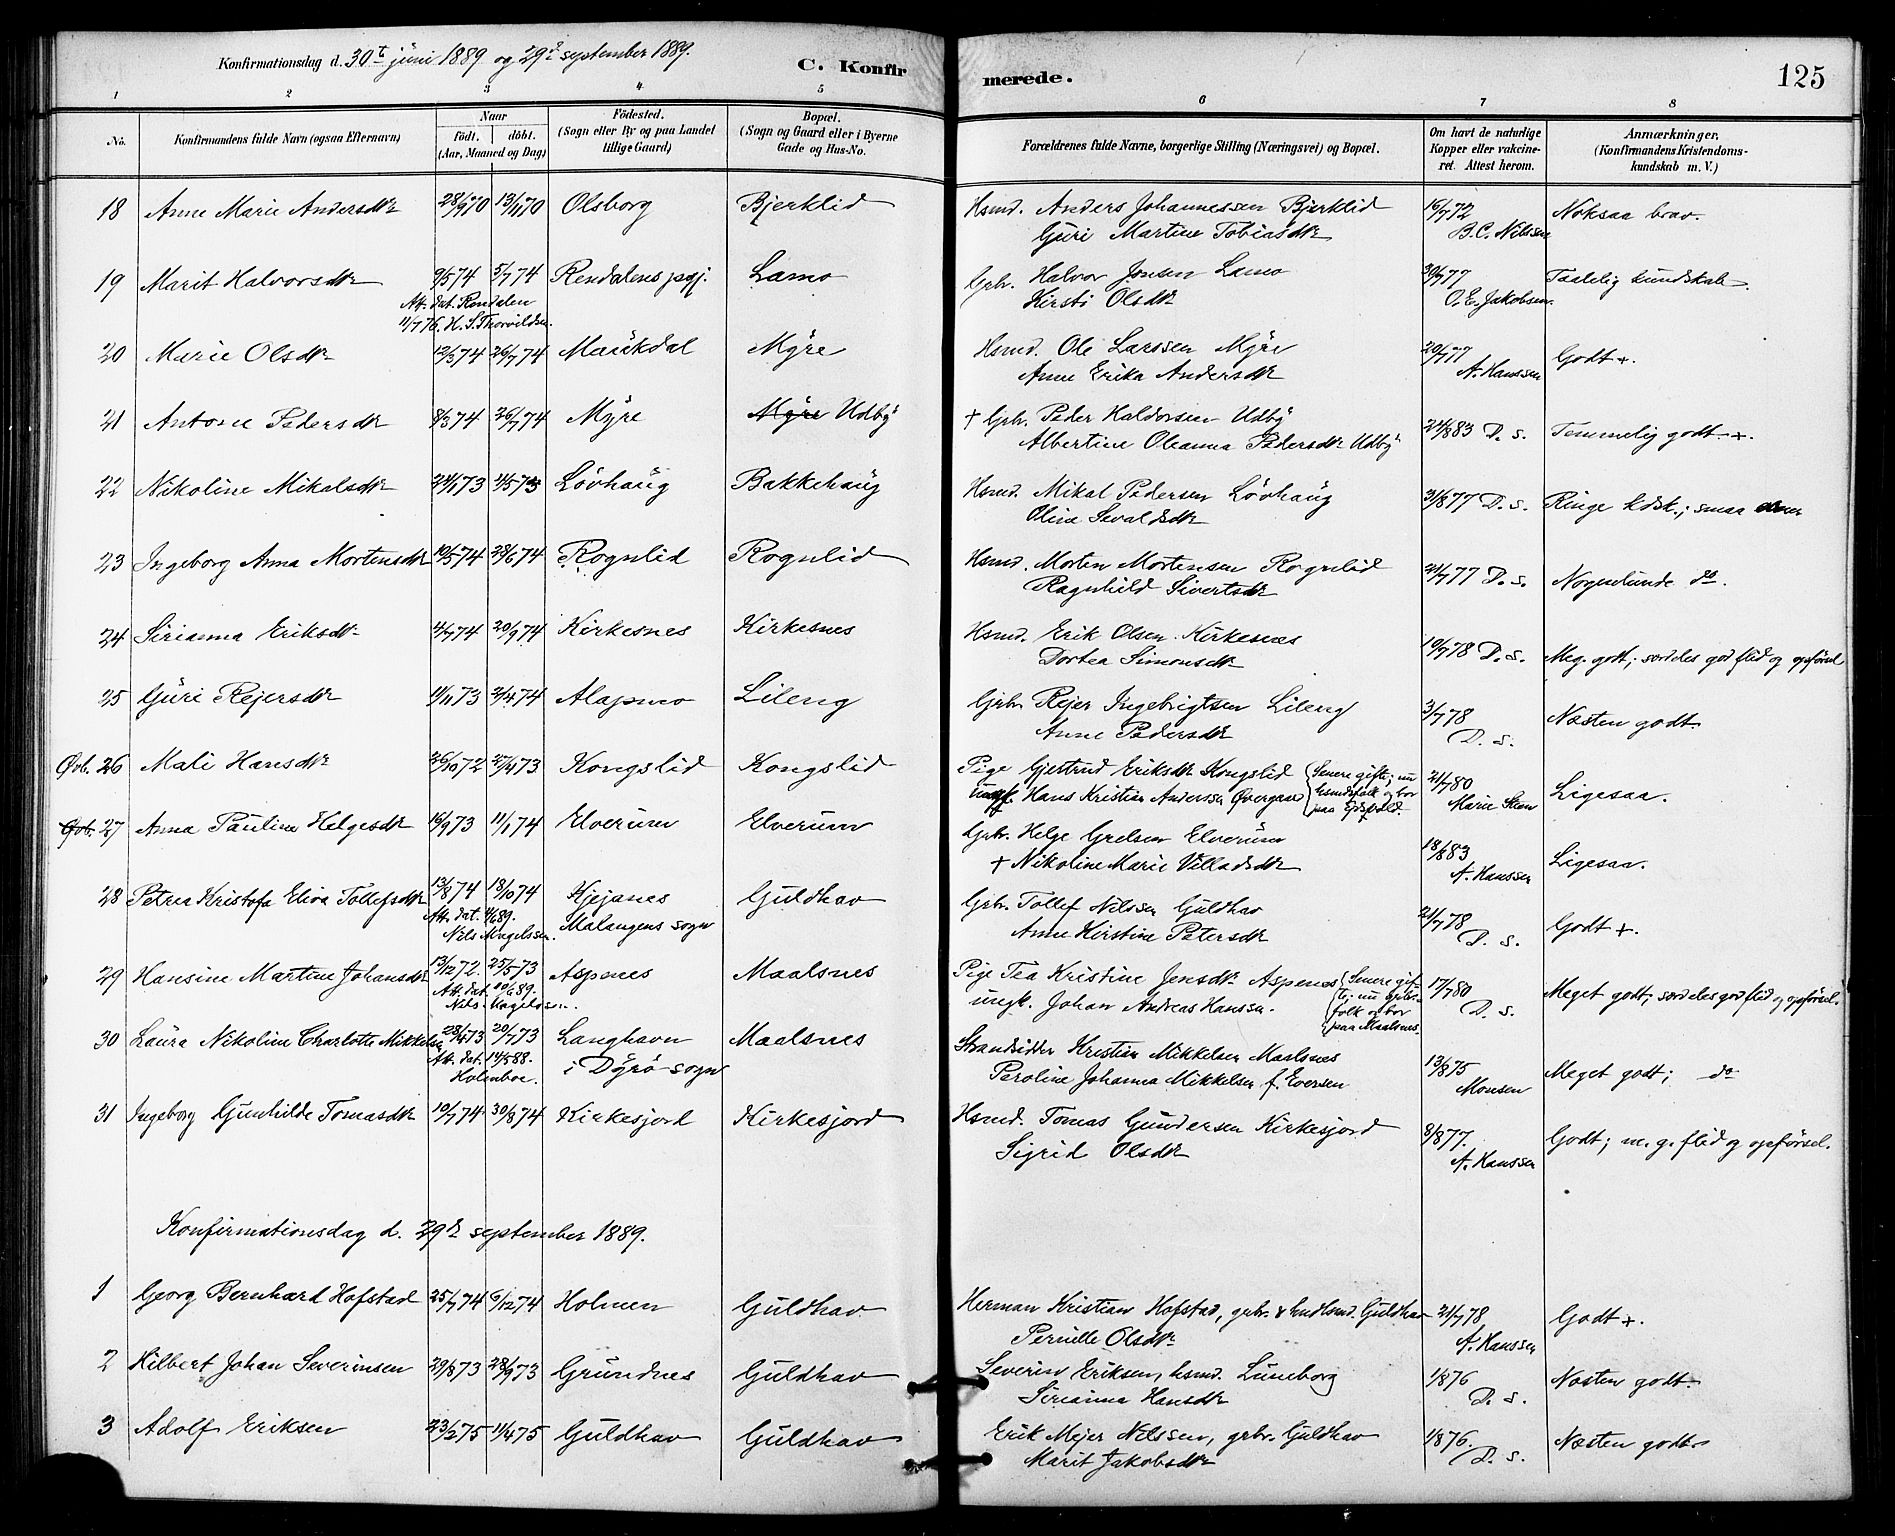 Konfirmationsdag d. 30t juni 1889 og 29d september 1889.
C. Konfirmerede.
125
1 2 3 4 5 6 7 8
No.
Konfirmandens fulde Navn (ogsaa Efternavn)
Naar
födt. döbt.
(Aar, Maaned og Dag)
Födested.
(Sogn eller By og paa Landet tillige Gaard)
Bopæl.
(Sogn og Gaard eller i Byerne Gade og Hus-No.
Forældrenes fulde Navne, borgerlige Stilling (Næringsvei) og Bopæl.
Om havt de naturlige Kopper eller vakcineret. Attest herom.
Anmærkninger,
(Konfirmandens Kristendomskundskab m. V.)
18 Anne Marie Andersdtr 28/9 70 13/11 70 Olsborg Bjerklid Hsmd. Anders Johannessen Bjerklid 16/7 72 Noksaa brav.
Guri Martine Tobiasdtr B.C. Nilssen
19 Marit Halvorsdtr 9/5 74 5/7 74 Rendalens pgj. Lamo Grbr. Halvor Jonsen Lamo 30/7 77 Taalelig kundskab.
Att. dat. Rendalen Kirsti Olsdtr O.E. Jakobsen.
11/7 76. H. S. Thorvildsen.
20 Marie Olsdtr 12/3 74 26/7 74 Maukdal Myre Hsmd. Ole Larssen Myre 20/7 77 Godt +.
Anne Erika Andersdtr A. Hanssen
21 Antone Pedersdtr 8/3 74 26/7 74 Myre Myre Udby + Grbr. Peder Haldorsen Udby 24/8 83 D. s. Temmelig godt +.
Albertine Oleanna Pedersdtr Udby
22 Nikoline Mikalsdtr 24/1 73 4/5 73 Lövhaug Bakkehaug Hsmd. Mikal Pedersen Lövhaug 31/8 77 D. s. Ringe kdsk.; smaa evner
Oline Sevaldsdtr
23 Ingeborg Anna Mortensdtr 10/5 74 28/6 74 Rognlid Rognlid Hsmd. Morten Mortensen Rognlid 21/7 77 D. s. Nogenlunde do.
Ragnhild Sivertsdtr
24 Sirianna Eriksdtr 4/7 74 20/9 74 Kirkesnes Kirkesnes Hsmd. Erik Olsen Kirkesnes 10/7 78 D. s. Meg. godt; særdeles god flid og opførsel
Dortea Simonsdtr
25 Guri Rejersdtr 11/11 73 2/4 74 Alapmo Lileng Grbr. Rejer Ingebrigtsen Lileng 3/7 78 Næsten godt.
Anne Pedersdtr D. s.
Øvb. 26 Mali Hansdtr 26/10 72 27/4 73 Kongslid Kongslid Pige Gjertrud Eriksdtr Kongslid (Senere gifte; nu 21/7 80 Ligesaa.
ungk. Hans Kristian Anderssen Øvergaard husmdsfolk og bor paa Ejdsfjeld. Marie Steen
Øvb. 27 Anna Pauline Helgesdtr 16/9 73 11/1 74 Elverum Elverum Grbr. Helge Grelsen Elverum 18/8 83 Ligesaa.
+ Nikoline Marie Villadsdtr A. Hanssen
28 Petrea Kristofa Elisa Tollefsdtr 13/8 74 18/10 74 Kjejanes Guldhav Grbr. Tollef Nilssen Guldhav 21/7 78 Godt +.
Att. dat. 4/6 89. Malangens sogn Anne Kirstine Petersdtr D. s.
Nils Magelssen.
29 Hansine Martine Johansdtr 13/12 72. 25/5 73 Aspenes Maalsnes Pige Tea Kristine Jensdtr Aspenes (Senere gifte; nu grbr.folk og bor paa Maalsnes. 17/7 80 Meget godt; særdeles god flid og opførsel.
Att. dat. 10/6 89. ungk. Johan Andreas Hanssen. D. s.
Nils Magelssen.
30 Laura Nikoline Charlotte Mikkelsen 28/4 73 20/7 73 Langhavn Maalsnes Strandsidder Kristian Mikkelsen Maalsnes 13/8 75 Meget godt; do
Att. dat. 14/5 88. i Dyrö sogn Peroline Johanna Mikkelsen f. Evensen Monsen
Holmboe.
31 Ingeborg Gunhilde Tomasdtr 10/7 74 30/8 74 Kirkesjord Kirkesjord Hsmd. Tomas Gundersen Kirkesjord 8/8 77. Godt; m. g. flid og opførsel.
Sigrid Olsdtr A. Hanssen
Konfirmationsdag d. 29d september 1889.
1 Georg Bernhard Hofstad 25/7 74 6/12 74 Holmen Guldhav Herman Kristian Hofstad, grbr. & hndlsmd. Guldhav 21/7 78 Godt +.
Pernille Olsdtr A. Hanssen
2 Hilbert Johan Severinsen 29/8 73 28/9 73 Grundnes Guldhav Severin Eriksen, hsmd. Luneborg 1/8 76 Næsten godt.
Sirianna Hansdtr D. s.
3 Adolf Eriksen 23/2 75 11/4 75 Guldhav Guldhav Erik Mejer Nilssen, grbr. Guldhav 1/8 76. Næsten godt.
Marit Jakobsdtr D. s.